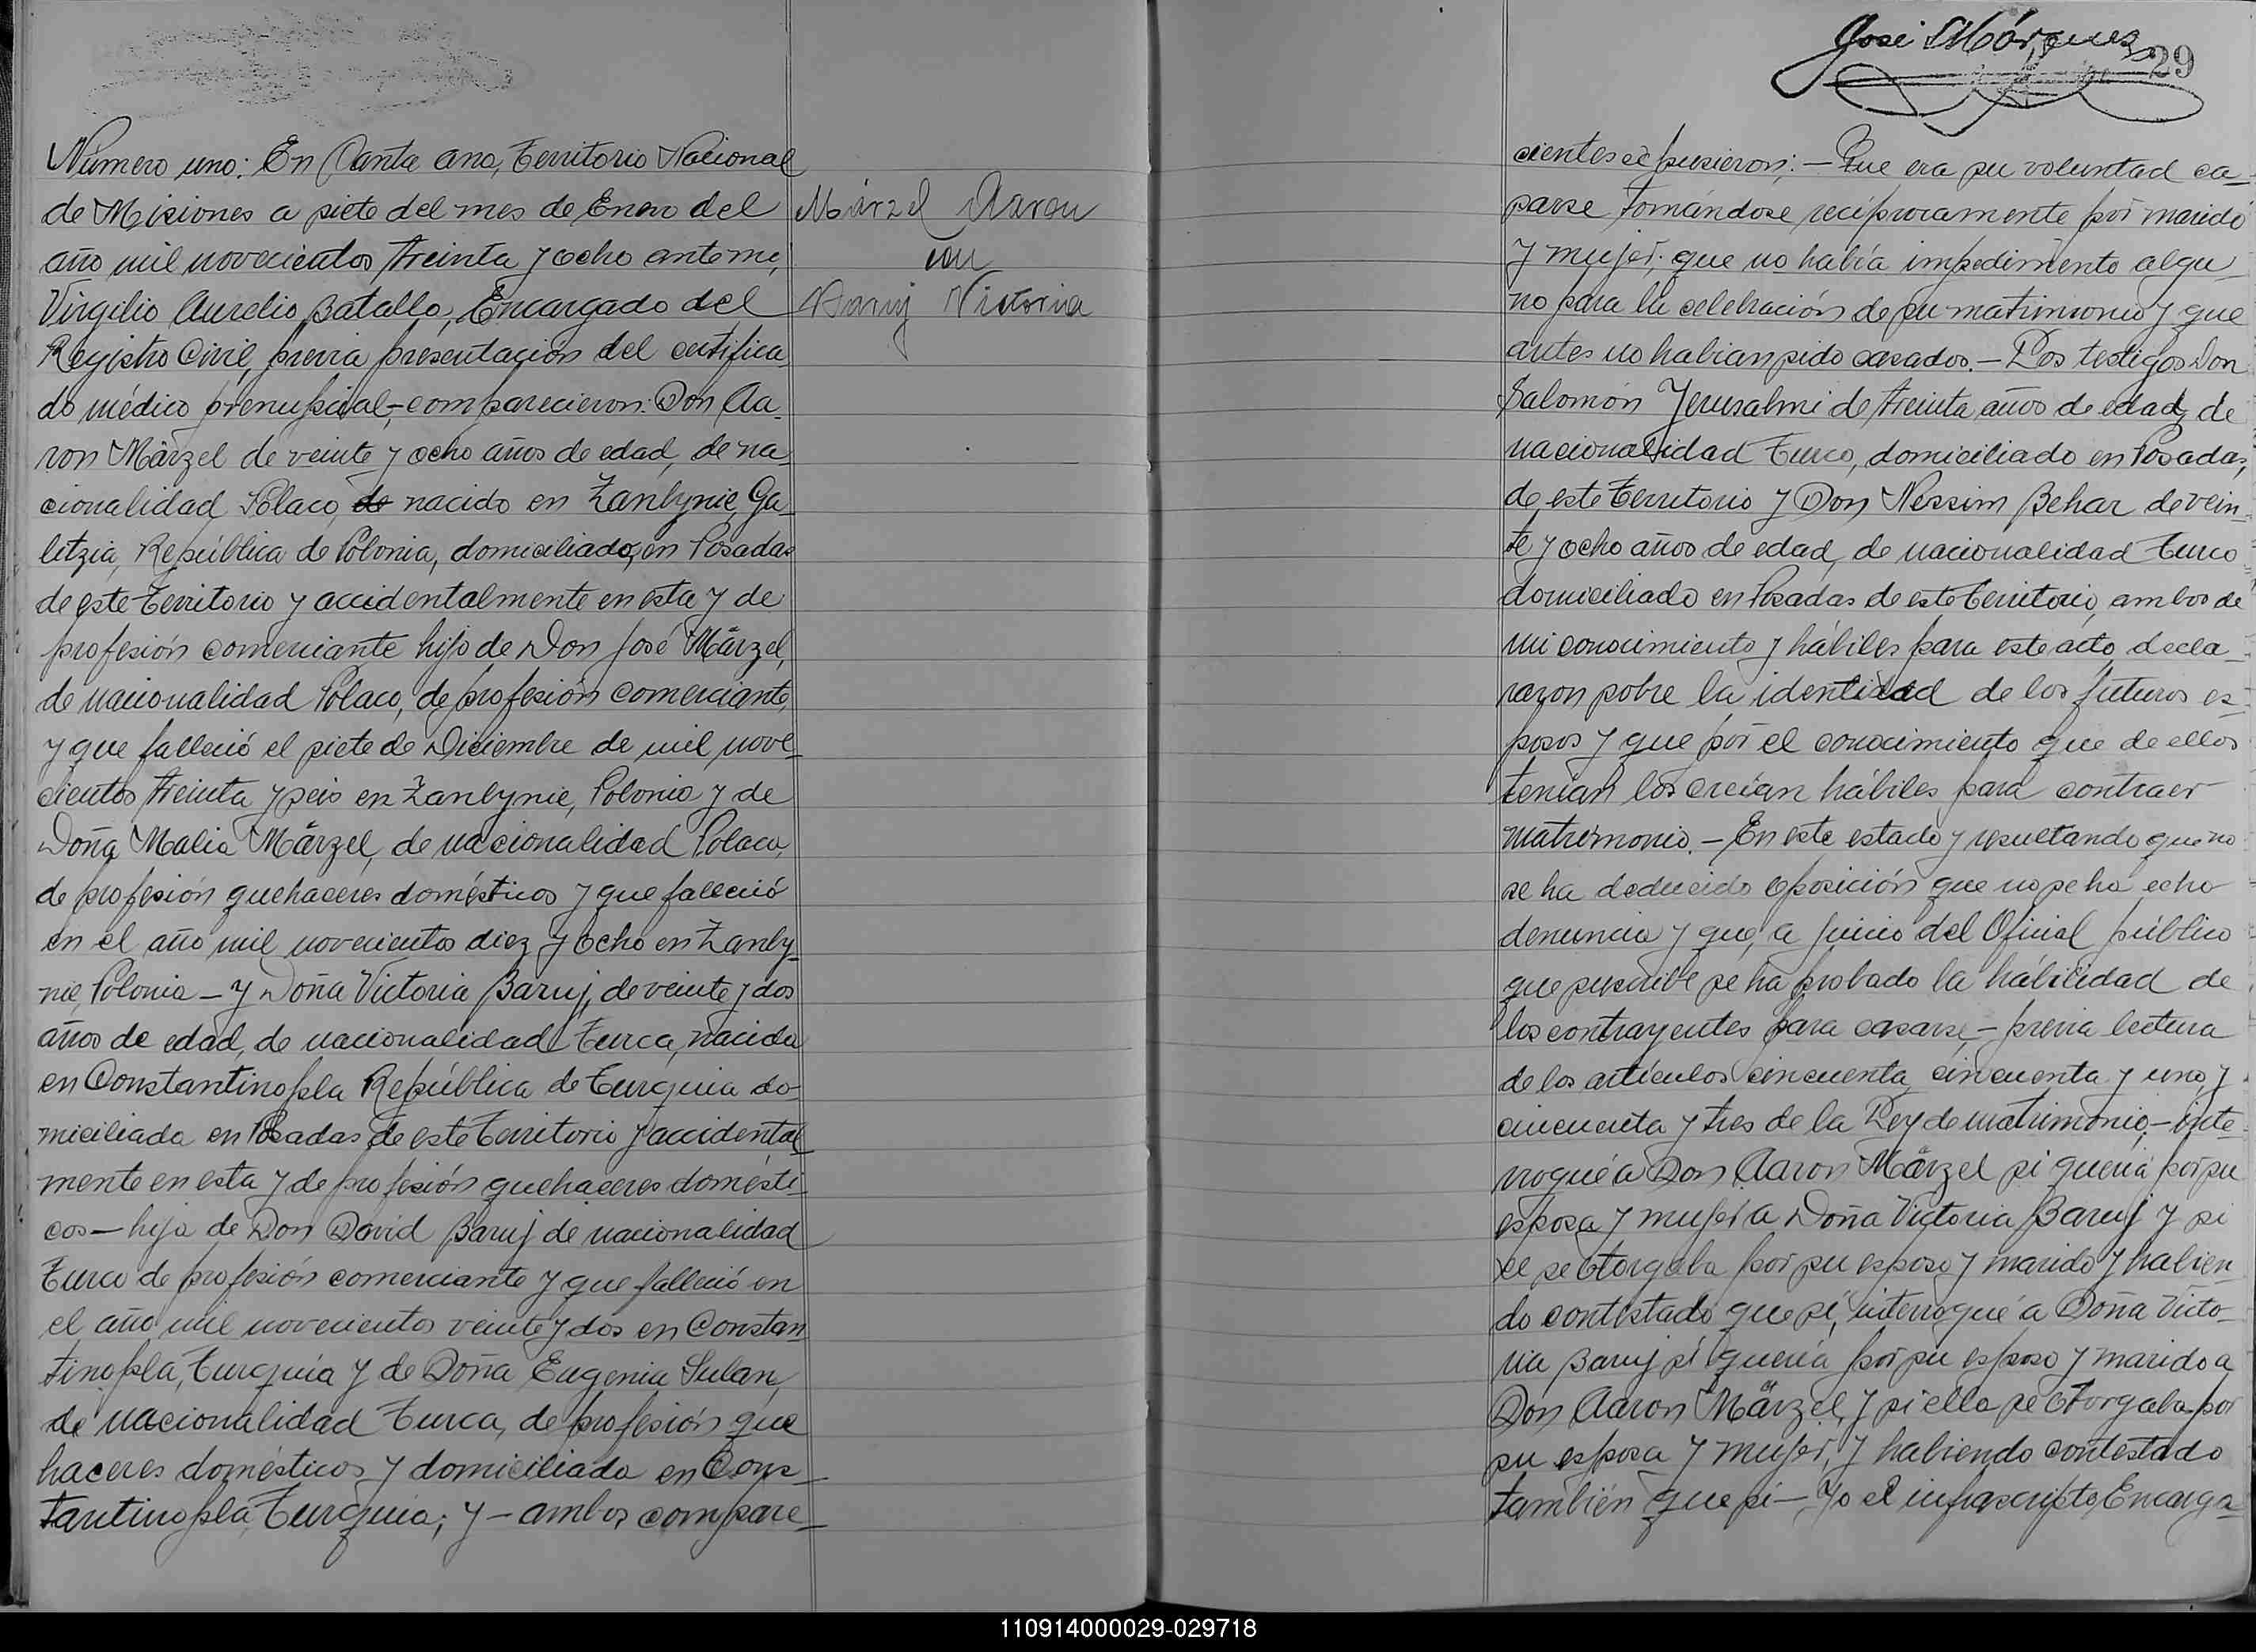 Número uno: En Santa ana, Territorio Nacional
de Misiones a siete del mes de Enero del
año mil novecientos treinta y ocho ante mí,
Virgilio Aurelio Batalla, Encargado del
Registro Civil, previa presentación del certifica
do médico prenupcial,- comparecieron: Don Aa-
ron Märzel de veinte y ocho años de edad, de na-
cionalidad Polaco, de nacido en Zanbynie, Ga-
litzia, República de Polonia, domiciliado, en Posadas
de este Territorio y accidentalmente en ésta y de
profesión comerciante hijo de Don José Märzel,
de nacionalidad Polaco, de profesión comerciante,
y que falleció el siete de Diciembre de mil nove-
cientos treinta y seis en Zanbynie, Polonia y de
Doña Malia Märzel, de nacionalidad Polaca,
de profesión quehaceres domésticos y que falleció
en el año mil novecientos diez y ocho en Zanby-
nie, Polonia - y Doña Victoria Baruj, de veinte y dos
años de edad, de nacionalidad Turca, nacida
en Constantinopla República de Turquia do-
miciliada en Posadas de este Territorio y accidental
mente en esta y de profesión quehaceres domésti-
cos - hija de Don David Baruj de nacionalidad
Turco de profesión comerciante y que falleció en
el año mil novecientos veinte y dos en Constan
tinopla, Turquía y de Doña Eugenia Sulan,
de nacionalidad Turca, de profesión que
haceres domésticos y domiciliada en Cons-
tantinopla Turquia; y - ambos compare-
Märzel Aaron
con
Baruj Victoria
José Márquez
29
cientes expusieron; - Que era su voluntad ca-
sarse tomándose recíprocamente por marido
y mujer; que no había impedimento algu-
no para la celebración de su matrimonio y que
antes no habian sido casados. - Los testigos Don
Salomón Jerusalmi de treinta años de edad, de
nacionalidad Turco, domiciliado en Posadas,
de este Territorio y Don Nessim Behar de vein-
te y ocho años de edad, de nacionalidad Turco
domiciliado en Posadas de este Territorio, ambos de
mi conocimiento y hábiles para este acto, decla-
raron sobre la identidad de los futuros es-
posos y que por el conocimiento que de ellos
tenían los creían hábiles para contraer
matrimonio. - En este estado y resultando que no
se ha deducido oposición que no se ha echo
denuncia y que, a juicio del Oficial público
que suscribe se ha probado la habilidad de
los contrayentes para casarse, - previa lectura
de los artículos cincuenta, cincuenta y uno, y
cincuenta y tres de la Ley de matrimonio, - inte-
rrogué a Don Aaron Märzel si quería por su
esposa y mujer a Doña Victoria Baruj y si
el se otorgaba por su esposo y marido y habien-
do contestado que sí, interrogué a Doña Victo-
ria Baruj si quería por su esposo y marido a
Don Aaron Märzel, y si ella se otorgaba por
su esposa y mujer, y habiendo contestado
también que sí - Yo el infrascripto, Encarga-
110914000029-029718